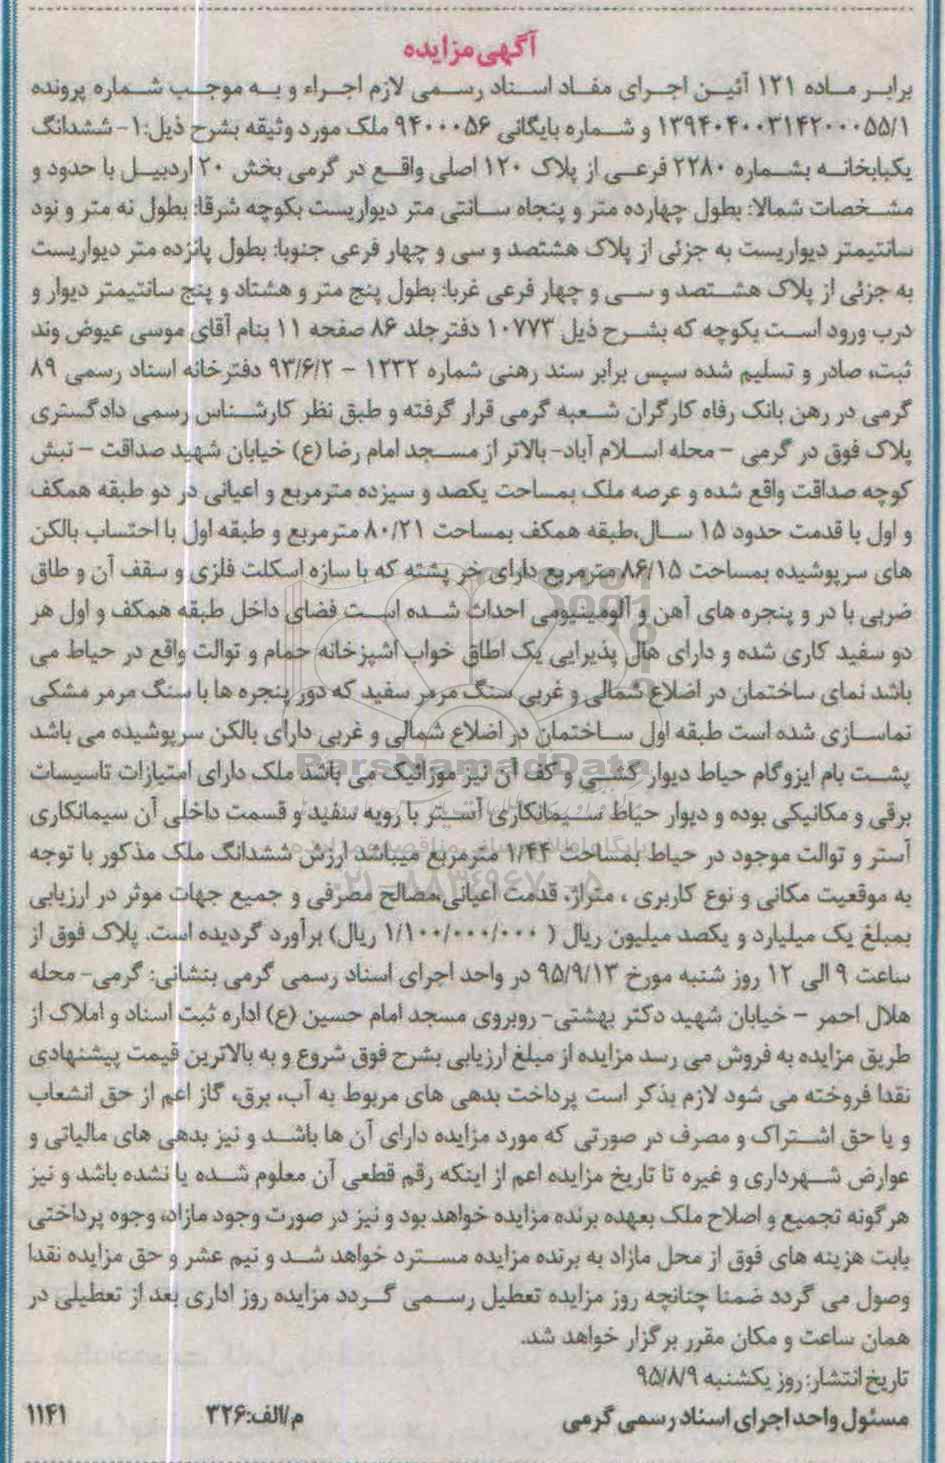 آگهی مزایده
برابر ماده ۱۲۱ آئین اجرای مفاد اسناد رسمی لازم اجراء و به موجب شماره پرونده
۱۳۹۴۰۴۰۰۳۱۴۲۰۰۰۵۵/۱ و شماره بایگانی ۹۴۰۰۰۵۶ ملک مورد وثیقه بشرح ذیل:۱- ششدانگ
یکبابخانه بشماره ۲۲۸۰ فرعی از پلاک ۱۲۰ اصلی واقع در گرمی بخش ۲۰ اردبیل با حدود و
مشخصات شمالا: بطول چهارده متر و پنجاه سانتی متر دیواریست بکوچه شرقا: بطول نه متر و نود
سانتیمتر دیواریست به جزئی از پلاک هشتصد و سی و چهار فرعی جنوبا: بطول پانزده متر دیواریست
به جزئی از پلاک هشتصد و سی و چهار فرعی غربا: بطول پنج متر و هشتاد و پنج سانتیمتر دیوار و
درب ورود است بکوچه که بشرح ذیل ۱۰۷۷۳ دفترجلد ۸۶ صفحه ۱۱ بنام آقای موسی عیوض وند
ثبت، صادر و تسلیم شده سپس برابر سند رهنی شماره ۱۲۳۲ - ۹۳/۶/۲ دفترخانه اسناد رسمی ۸۹
گرمی در رهن بانک رفاه کارگران شعبه گرمی قرار گرفته و طبق نظر کارشناس رسمی دادگستری
پلاک فوق در گرمی - محله اسلام آباد- بالاتر از مسجد امام رضا (ع) خیابان شهید صداقت - نبش
کوچه صداقت واقع شده و عرصه ملک بمساحت یکصد و سیزده مترمربع و اعیانی در دو طبقه همکف
و اول با قدمت حدود ۱۵ سال،طبقه همکف بمساحت ۸۰/۲۱ مترمربع و طبقه اول با احتساب بالکن
های سرپوشیده بمساحت ۸۶/۱۵ مترمربع دارای خر پشته که با سازه اسکلت فلزی و سقف آن و طاق
ضربی با در و پنجره های آهن و آلومینیومی احداث شده است فضای داخل طبقه همکف و اول هر
دو سفید کاری شده و دارای هال پذیرایی یک اطاق خواب آشپزخانه حمام و توالت واقع در حیاط می
باشد نمای ساختمان در اضلاع شمالی و غربی سنگ مرمر سفید که دور پنجره ها با سنگ مرمر مشکی
نماسازی شده است طبقه اول ساختمان در اضلاع شمالی و غربی دارای بالکن سرپوشیده می باشد
ParsNamadData
پشت بام ایزوگام حیاط دیوار کشی و کف آن نیز موزائیک می باشد ملک دارای امتیازات تاسیسات
برقی و مکانیکی بوده و دیوار حیاط سیمانکاری آستر با رویه سفید و قسمت داخلی آن سیمانکاری
آستر و توالت موجود در حیاط بمساحت ۱/۴۴ مترمربع میباشد ارزش ششدانگ ملک مذکور با توجه
به موقعیت مکانی و نوع کاربری ، متراژ، قدمت اعیانی،مصالح مصرفی و جمیع جهات موثر در ارزیابی
بمبلغ یک میلیارد و یکصد میلیون ریال ( ۱/۱۰۰/۰۰۰/۰۰۰ ریال) برآورد گردیده است. پلاک فوق از
ساعت ۹ الی ۱۲ روز شنبه مورخ ۹۵/۹/۱۳ در واحد اجرای اسناد رسمی گرمی بنشانی: گرمی- محله
هلال احمر - خیابان شهید دکتر بهشتی- روبروی مسجد امام حسین (ع) اداره ثبت اسناد و املاک از
طریق مزایده به فروش می رسد مزایده از مبلغ ارزیابی بشرح فوق شروع و به بالاترین قیمت پیشنهادی
نقدا فروخته می شود لازم بذکر است پرداخت بدهی های مربوط به آب، برق، گاز اعم از حق انشعاب
و یا حق اشتراک و مصرف در صورتی که مورد مزایده دارای آن ها باشد و نیز بدهی های مالیاتی و
عوارض شهرداری و غیره تا تاریخ مزایده اعم از اینکه رقم قطعی آن معلوم شده یا نشده باشد و نیز
هرگونه تجمیع و اصلاح ملک بعهده برنده مزایده خواهد بود و نیز در صورت وجود مازاد، وجوه پرداختی
بابت هزینه های فوق از محل مازاد به برنده مزایده مسترد خواهد شد و نیم عشر و حق مزایده نقدا
وصول می گردد ضمنا چنانچه روز مزایده تعطیل رسمی گردد مزایده روز اداری بعد از تعطیلی در
همان ساعت و مکان مقرر برگزار خواهد شد.
تاریخ انتشار: روز یکشنبه ۹۵/۸/۹
مسئول واحد اجرای اسناد رسمی گرمی م/الف:۳۲۶ ۱۱۴۱